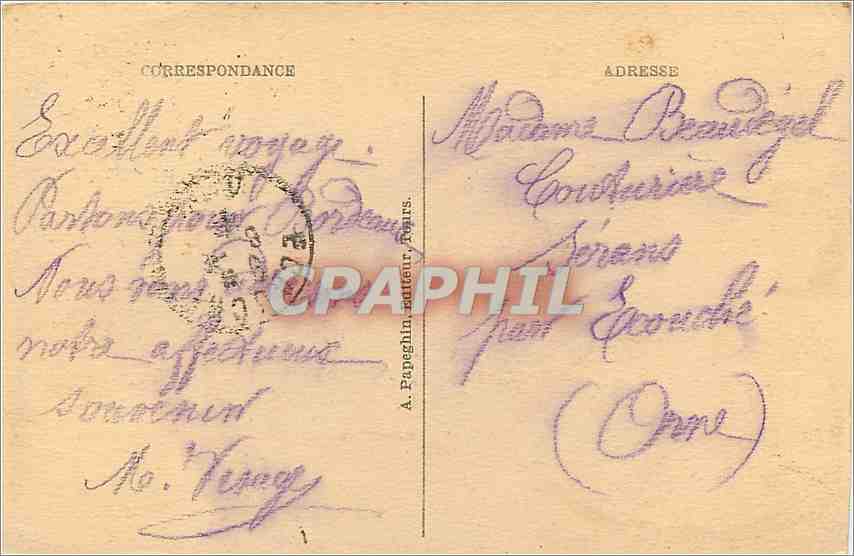 CORRESPONDANCE
Excellent voyage.
Partons pour Bordeaux
Nous vous
notre affectueux
souvenir
M.
A. Papeghin, Editeur, Tours.
ADRESSE
Madame Beaudégel
Couturière
Sérans
par Ecouché
(Orne)
CPAPHIL